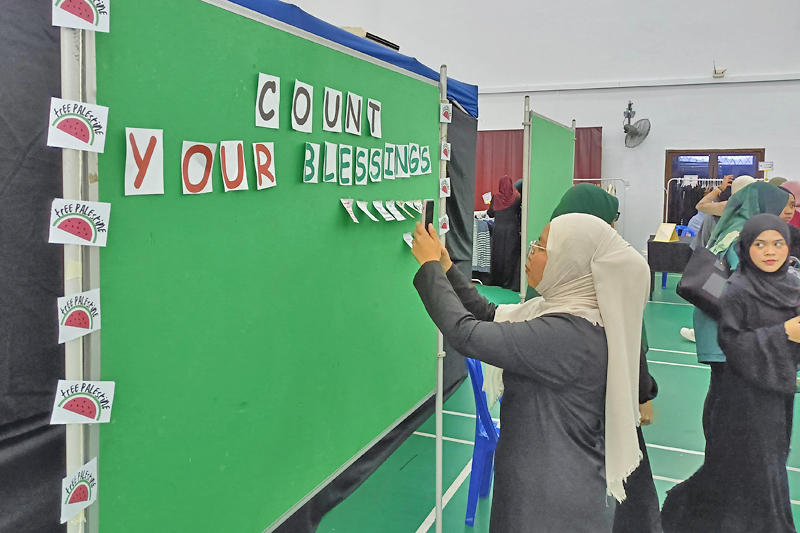 COUNT
YOUR BLESSINGS
FREE PALESTINE
FREE PALESTINE
FREE PALESTINE
FREE PALESTINE
FREE PALESTINE